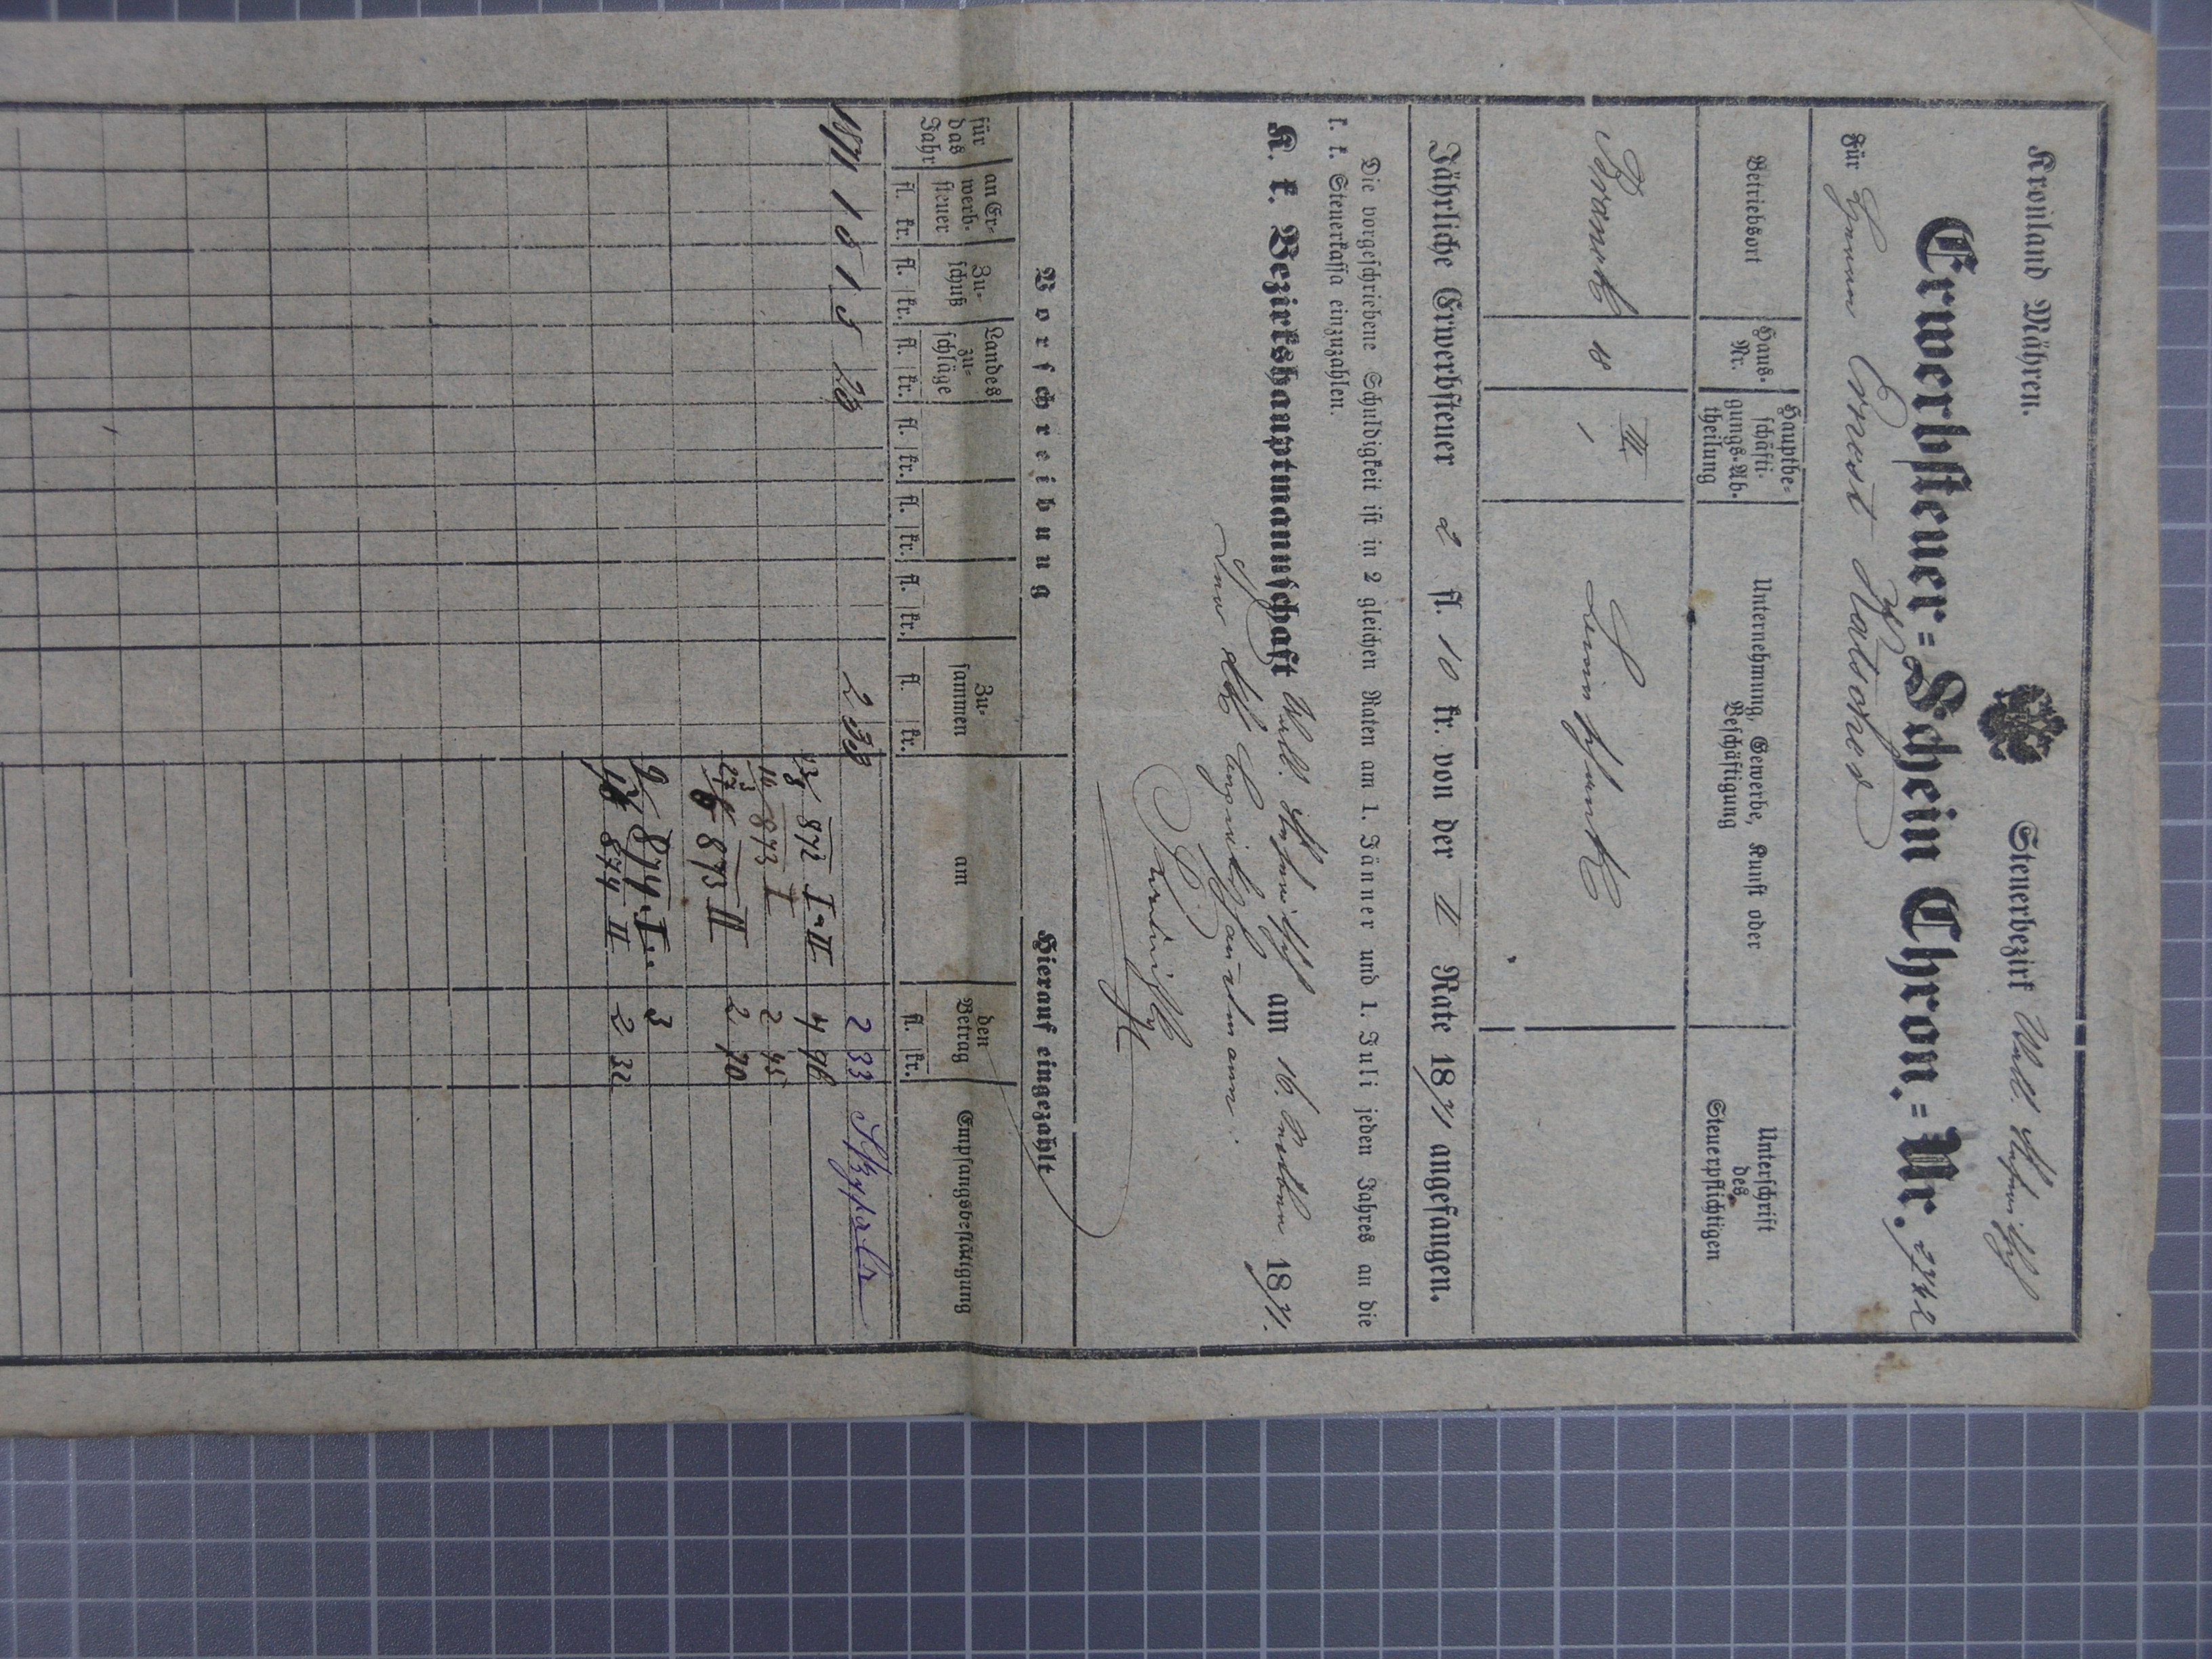 Kronland Mähren.
Steuerbezirk Wall. Meseritsch
Erwerbsteuer-Schein Chron.-Nr. 2742
Für Herrn Ernest Hatschek
Betriebsort
Haus-Nr.
Hauptbe-
schäfti-
gungs-Ab-
theilung
Unternehmung, Gewerbe, Kunst oder
Beschäftigung
Unterschrift
des
Steuerpflichtigen
18
Jährliche Erwerbsteuer 2 fl. 10 kr. von der II Rate 1871 angefangen.
Die vorgeschriebene Schuldigkeit ist in 2 gleichen Raten am 1. Jänner und 1. Juli jeden Jahres an die
k. k. Steuerkassa einzuzahlen.
K. k. Bezirkshauptmannschaft Wall. Meseritsch am 16. 1871.
Der kk Bezirkshauptmann:
Vorschreibung
Hierauf eingezahlt
für
das
Jahr
an Er-
werb-
steuer
Zu-
schuß
Landes
zu-
schläge
Zu-
sammen
am
den
Betrag
Empfangsbestätigung
fl. kr. fl. kr. fl. kr. fl. kr. fl. kr. fl. kr. fl. kr. fl. kr.
1871 1 5 1 5 23 2 33 2 33
872 I-II 4 96
873 I 2 45
873 II 2 70
874 I. 3
874 II 2 32